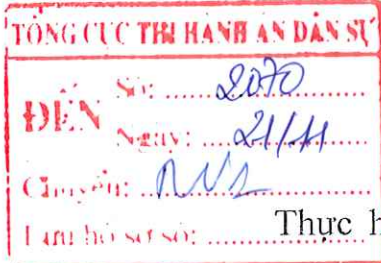 TỔNG CỤC THI HÀNH ÁN DÂN SỰ
ĐẾN
Số: ........2070........
Ngày: ....21/11........
Chuyển: ....NV1........
Lưu hồ sơ số: ................ Thực h